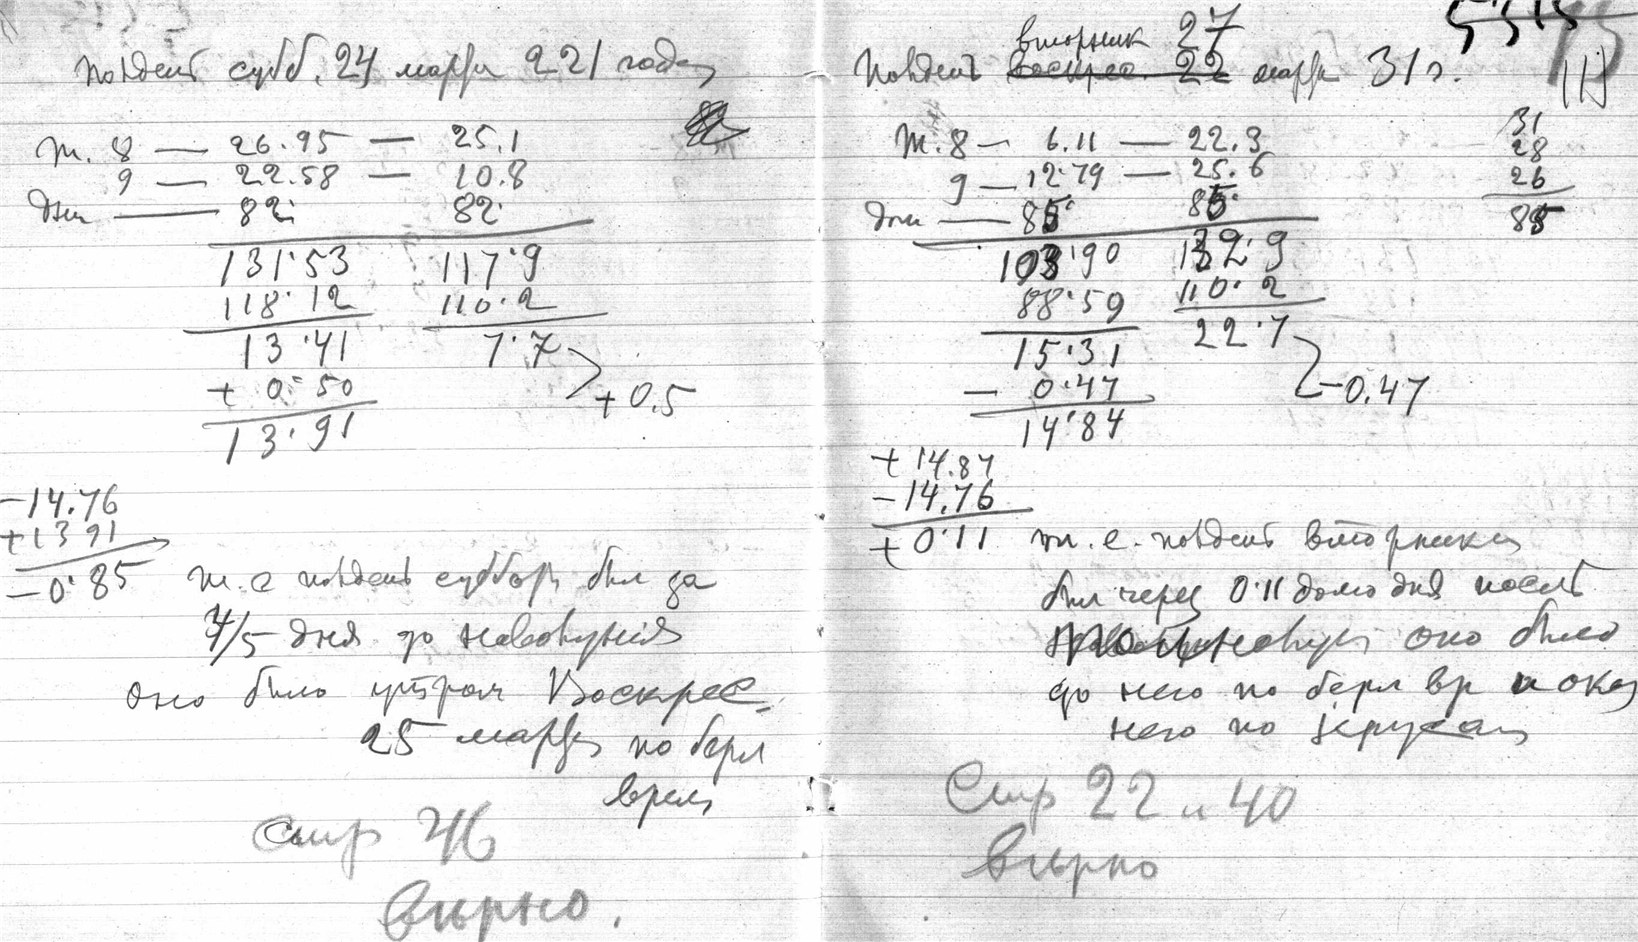 полдень субб. 24 марта 221 года
т. 8 — 26.95 — 25.1
9 — 22.58 — 10.8
дни — 82 82
131.53 117.9
118.12 110.2
13.41 7.7
+ 0.50 + 0.5
13.91
-14.76
+13 91
-0.85 т. е полдень субботы был за
4/5 дня до новолунія
оно было утром Воскрес.
25 марта по берл
врем
Стр 76
Вѣрно.
вторник 27
Полдень воскрес. 22 марта 31 г.
т. 8 — 6.11 — 22.3
9 — 12.79 — 25.6
дни — 85 85
103.90 132.9
88.59 110.2
15.31 22.7
- 0.47 -0.47
14.84
31
28
26
85
+ 14.87
-14.76
+ 0.11 т. е. полдень вторника
был через 0.11 долю дня послѣ
новолун оно было
до него по берл вр и око
него по Іерусал
Стр 22 и 40
Вѣрно